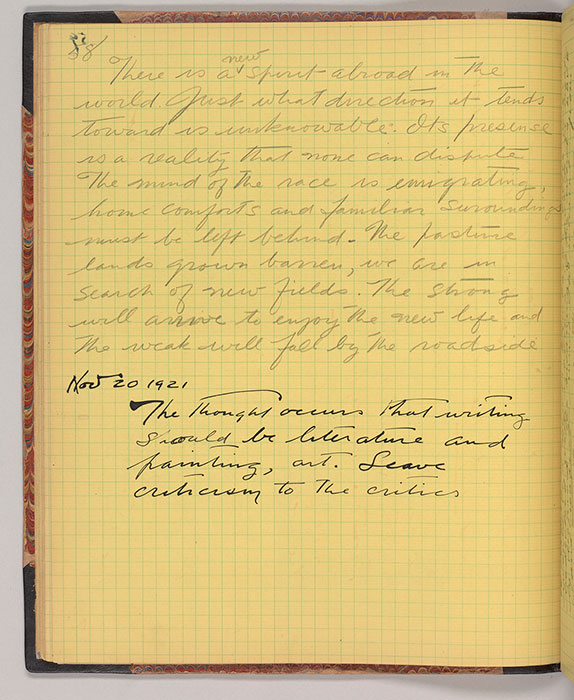 58
new
There is a spirit abroad in the
world Just what direction it tends
toward is unknowable. Its presense
is a reality that none can dispute
The mind of the race is emigrating,
home comforts and familiar suroundings
must be left behind. The pasture
lands grown barren, we are in
search of new fields. The strong
will arrive to enjoy the new life and
the weak will fall by the roadside
Nov 20 1921
The thought occurs that writing
should be literature and
painting, art. Leave
criticism to the critics